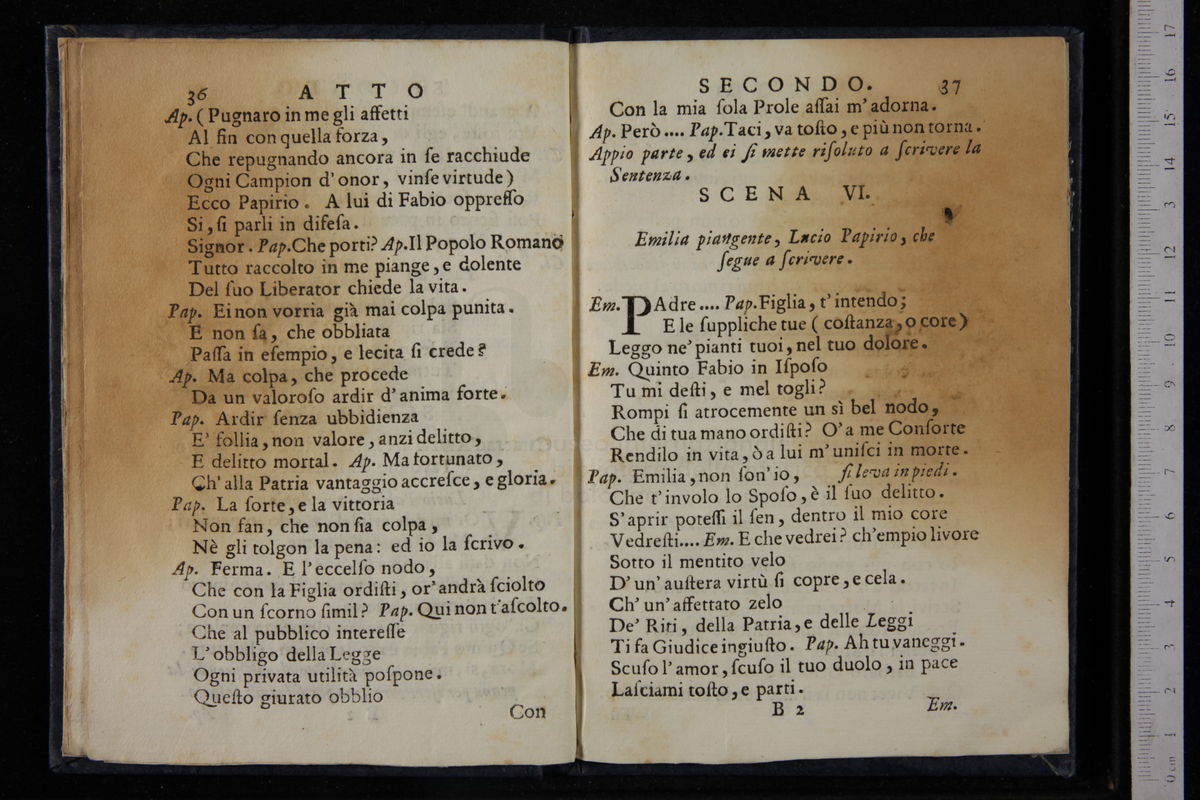 36 ATTO
Ap. ( Pugnaro in me gli affetti
Al fin con quella forza,
Che repugnando ancora in ſe racchiude
Ogni Campion d' onor, vinſe virtude)
Ecco Papirio. A lui di Fabio oppreſſo
Si, ſi parli in difeſa.
Signor. Pap. Che porti? Ap. Il Popolo Romano
Tutto raccolto in me piange, e dolente
Del ſuo Liberator chiede la vita.
Pap. Ei non vorria già mai colpa punita.
E non ſa, che obbliata
Paſſa in eſempio, e lecita ſi crede?
Ap. Ma colpa, che procede
Da un valoroſo ardir d' anima forte.
Pap. Ardir ſenza ubbidienza
E' follia, non valore, anzi delitto,
E delitto mortal. Ap. Ma fortunato,
Ch' alla Patria vantaggio accreſce, e gloria.
Pap. La ſorte, e la vittoria
Non fan, che non ſia colpa,
Nè gli tolgon la pena: ed io la ſcrivo.
Ap. Ferma. E l' eccelſo nodo,
Che con la Figlia ordiſti, or' andrà ſciolto
Con un ſcorno ſimil? Pap. Qui non t'aſcolto.
Che al pubblico intereſſe
L' obbligo della Legge
Ogni privata utilità poſpone.
Queſto giurato obblio
Con
SECONDO. 37
Con la mia ſola Prole aſſai m' adorna.
Ap. Però .... Pap. Taci, va toſto, e più non torna.
Appio parte, ed ei ſi mette riſoluto a ſcrivere la
Sentenza.
SCENA VI.
Emilia piangente, Lucio Papirio, che
ſegue a ſcrivere.
Em. PAdre .... Pap. Figlia, t' intendo;
E le ſuppliche tue ( coſtanza, o core)
Leggo ne' pianti tuoi, nel tuo dolore.
Em. Quinto Fabio in Iſpoſo
Tu mi deſti, e mel togli?
Rompi ſi atrocemente un sì bel nodo,
Che di tua mano ordiſti? O' a me Conſorte
Rendilo in vita, ò a lui m' uniſci in morte.
Pap. Emilia, non ſon' io, ſi leva in piedi.
Che t' involo lo Spoſo, è il ſuo delitto.
S' aprir poteſſi il ſen, dentro il mio core
Vedreſti.... Em. E che vedrei? ch' empio livore
Sotto il mentito velo
D' un' auſtera virtù ſi copre, e cela.
Ch' un' affettato zelo
De' Riti, della Patria, e delle Leggi
Ti fa Giudice ingiuſto. Pap. Ah tu vaneggi.
Scuſo l' amor, ſcuſo il tuo duolo, in pace
Laſciami toſto, e parti.
B 2 Em.
0 cm 1 2 3 4 5 6 7 8 9 10 11 12 3 14 15 16 17